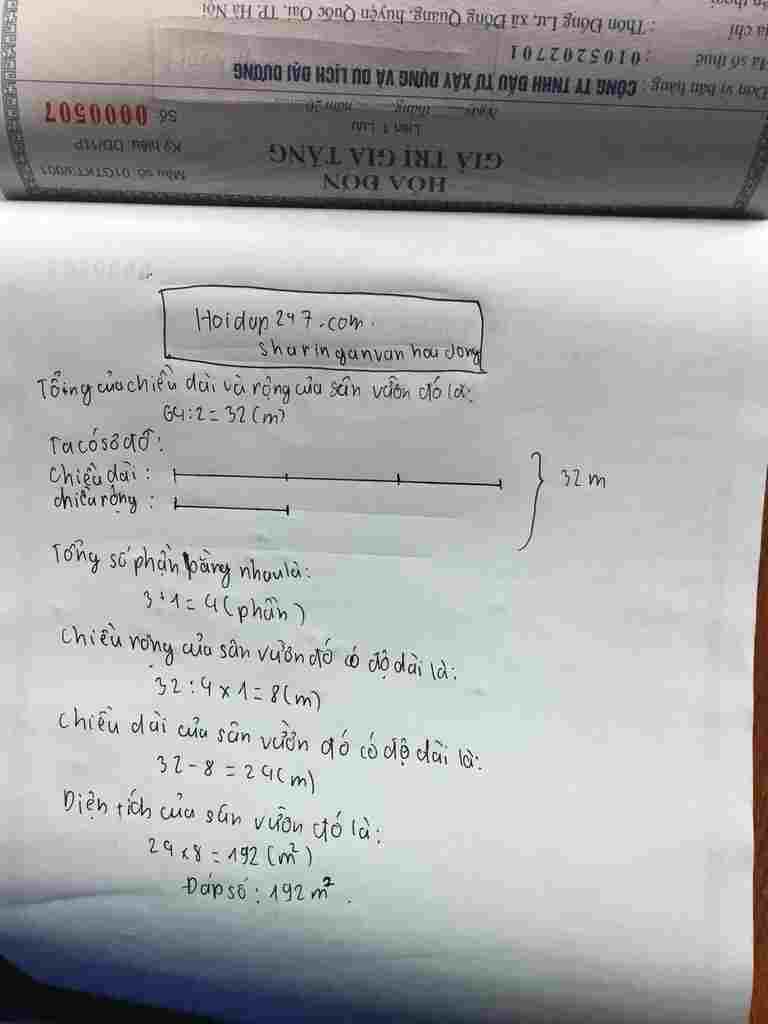 Địa chỉ : Thôn Đồng Lư, xã Đồng Quang, huyện Quốc Oai, TP. Hà Nội
Mã số thuế : 0105202701
Đơn vị bán hàng : CÔNG TY TNHH ĐẦU TƯ XÂY DỰNG VÀ DU LỊCH ĐẠI DƯƠNG
Ngày tháng năm 20
Số 0000507
Liên 1: Lưu
GIÁ TRỊ GIA TĂNG
Ký hiệu: DD/11P
HÓA ĐƠN
Mẫu số: 01GTKT3/001
Hoidap247.com.
sharinganvan hoa dong
Tổng của chiều dài và rộng của sân vườn đó là:
64:2=32(m)
Ta có sơ đồ:
Chiều dài :
chiều rộng :
32 m
Tổng số phần bằng nhau là:
3+1=4(phần)
Chiều rộng của sân vườn đó có độ dài là:
32:4x1=8(m)
Chiều dài của sân vườn đó có độ dài là:
32-8=24(m)
Diện tích của sân vườn đó là:
24x8=192(m²)
Đáp số: 192m².